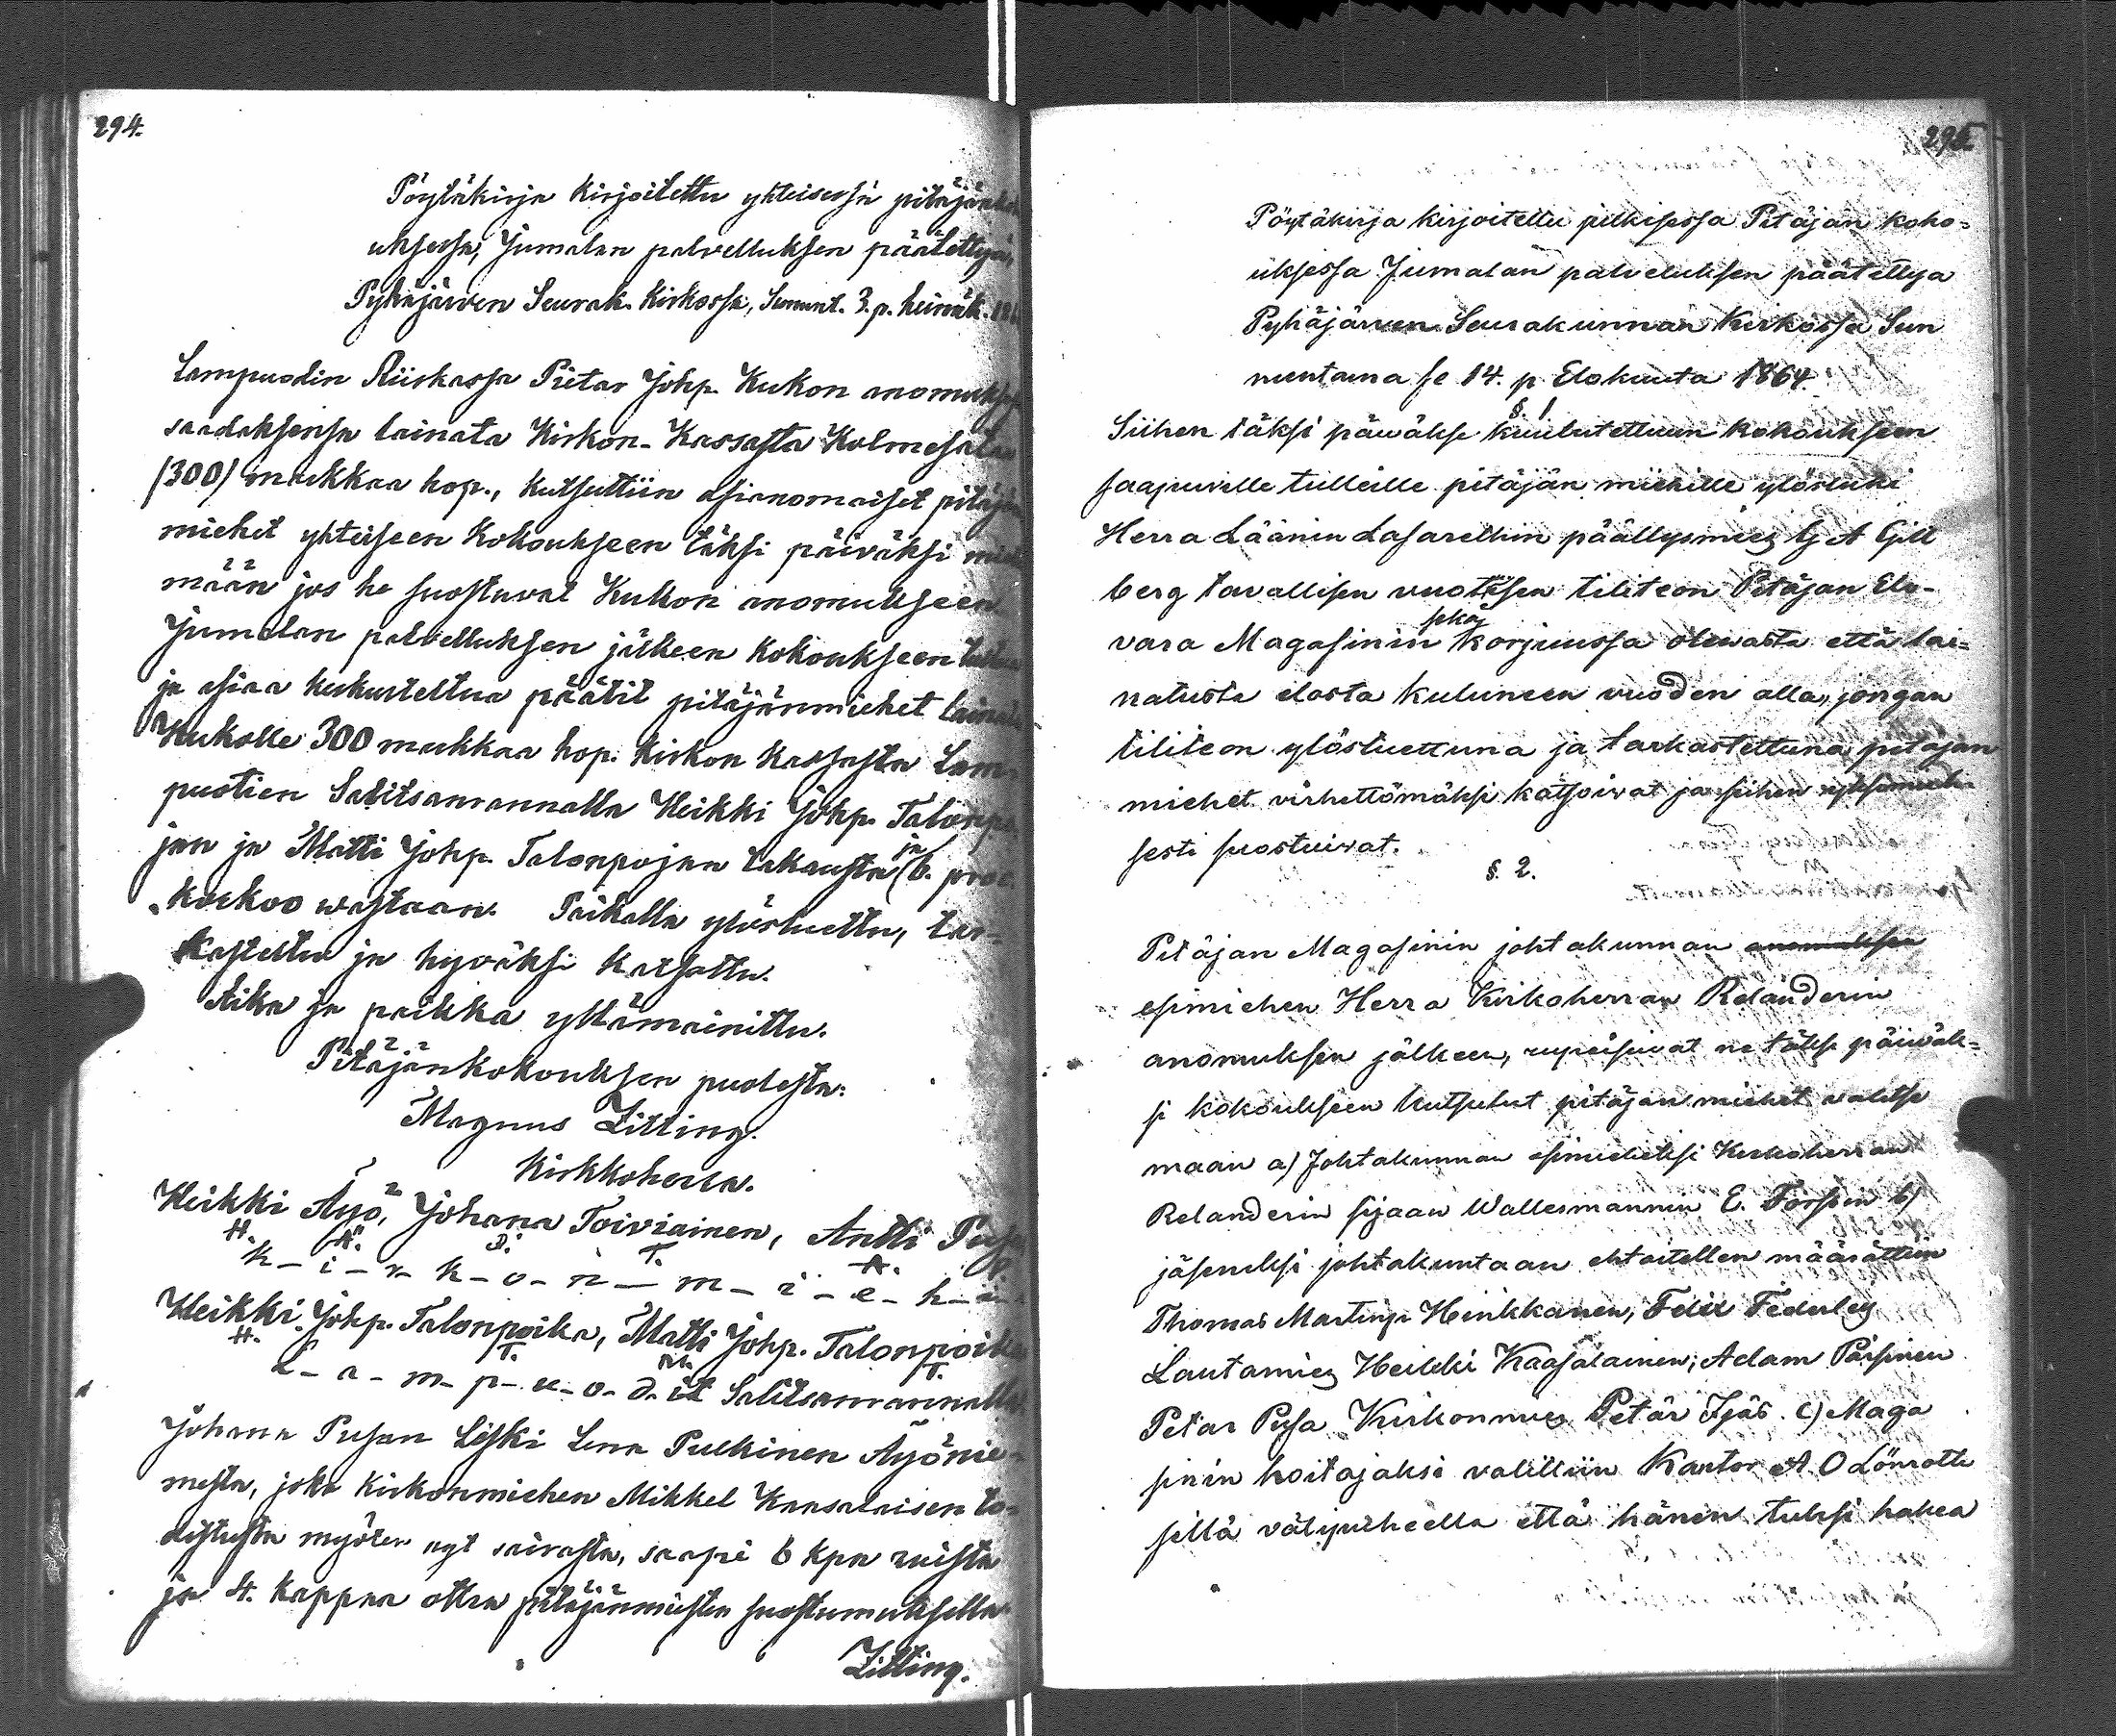 294.
Pöytäkirja kirjoitettu yhteisessä pitäjän
uksessa, Jumalan palvelluksen päätettyä,
Pyhäjärven Seurak. Kirkossa, Sununt. 3. p. heinäk.
Lampuodin Riiskassa Pietar Johp. Kukon anomuksen
saadaksensa lainata Kirkon-Kassasta Kolmesataa
(300) markkaa hop., kutsuttiin asianomaiset pitäjän
miehet yhteiseen Kokoukseen täksi päiväksi
mään jos he suostuvat Kukon anomukseen
Jumalan palvelluksen jälkeen kokoukseen
ja asiaa keskusteltua päätit pitäjänmiehet lainata
Kukolle 300 markkaa hop. Kirkon kassasta Lam-
puotien Salitsanrannalla Heikki Johp. Talonpo
jan ja Matti Johp. Talonpojan takausta ja 6. proc.
korkoo wastaan. Paikalla ylösluettu, tar-
kastettu ja hyväksi katsottu.
Aika ja paikka yllämainittu.
Pitäjänkokouksen puolesta:
Magnus Zitting.
Kirkkoherra.
Heikki Äyö, Johana Toiviainen, Antti Pusa
H. Ä. J. T. A. P.
k-i-r-k-o-n-m-i-e-h-i
Heikki Johp. Talonpoika, Matti Johp. Talonpoika
H. T. M. T.
L-a-m-p-u-o-d-it Salitsanrannalla
Johana Pusan Leski Lena Pulkinen Äyönie-
mestä, joka kirkonmiehen Mikkel Kaasalaisen to-
distusta myöten nyt sairasta, saapi 6 kpa ruista
ja 4. kappaa otraa pitäjänmiesten suostumuksella
Zitting.
295
Pöytäkirja kirjoitettu julkisessa Pitäjän koko-
uksessa Jumalan palveluksen päätettyä
Pyhäjärven Seurakunnan Kirkossa Sun
nuntaina se 14. p Elokuuta 1864.
§. 1.
Siihen täksi päiwäkse kuulutettuun kokoukseen
saapuville tulleille pitäjän miehille ylösluki
Herra Läänin Lasarettin päällysmies G A Gill
berg tavallisen vuotisen tiliteon Pitäjan Elo-
vara Magasinin sekä korjuussa olewasta että lai-
natusta elosta kuluneen vuoden alla, jongan
tiliteon ylösluettuna ja tarkastettuna pitäjan
miehet virhettömäksi katsoivat ja siihen yksimieli-
sesti suostuivat.
§. 2.
Pitäjan Magasinin johtakunnan anomuksen
esimiehen Herra Kirkoherran Relanderin
anomuksen jälkeen, rupeisivat ne täkse päiwäk-
si kokoukseen kutsutut pitäjan miehet valitse
maan a) Johtakunnan esimieheksi Kirkoherran
Relanderin sijaan Wallesmannin E. Forssin b)
jäseneksi johtakuntaan ehtoitellen määrättiin
Thomas Martinp Hinkkanen, Felix Federley
Lautamies Heikki Kaasalainen, Adam Päisinen
Petar Pusa Kirkonmies Petär Ijäs. c) Maga
sinin hoitajaksi valittiin Kantor A O Lönrotti
sillä välipuheella että hänen tuksi hakea